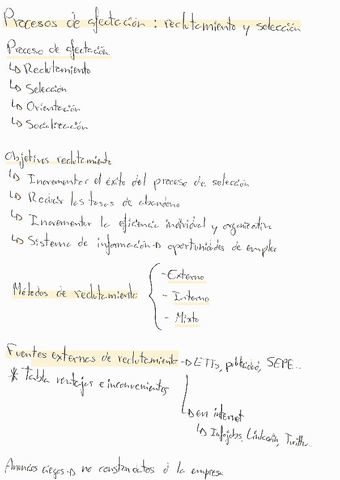 Procesos de afectación: reclutamiento y selección
Proceso de afectación
↳ Reclutamiento
↳ Selección
↳ Orientación
↳ Socialización
Objetivos reclutamiento
↳ Incrementar el éxito del proceso de selección
↳ Reducir las tasas de abandono
↳ Incrementar la eficiencia individual y organizativa
↳ Sistema de información → oportunidades de empleo
Métodos de reclutamiento
- Externo
- Interno
- Mixto
Fuentes externas de reclutamiento → ETTs, publicació, SEPE...
* Tabla ventajas e inconvenientes
↳ en internet
↳ Infojobs, Linkedin, Twitter...
Anuncios ciegos → no constan datos d la empresa